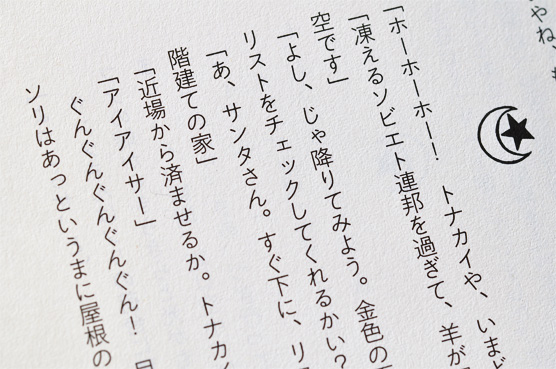 やね、
「ホーホーホー！　トナカイや、いまど
「凍えるソビエト連邦を過ぎて、羊が
空です」
「よし、じゃ降りてみよう。金色の
リストをチェックしてくれるかい？
「あ、サンタさん。すぐ下に、リ
階建ての家」
「近場から済ませるか。トナカイ
「アイアイサー」
ぐんぐんぐんぐんぐん！
ソリはあっというまに屋根の